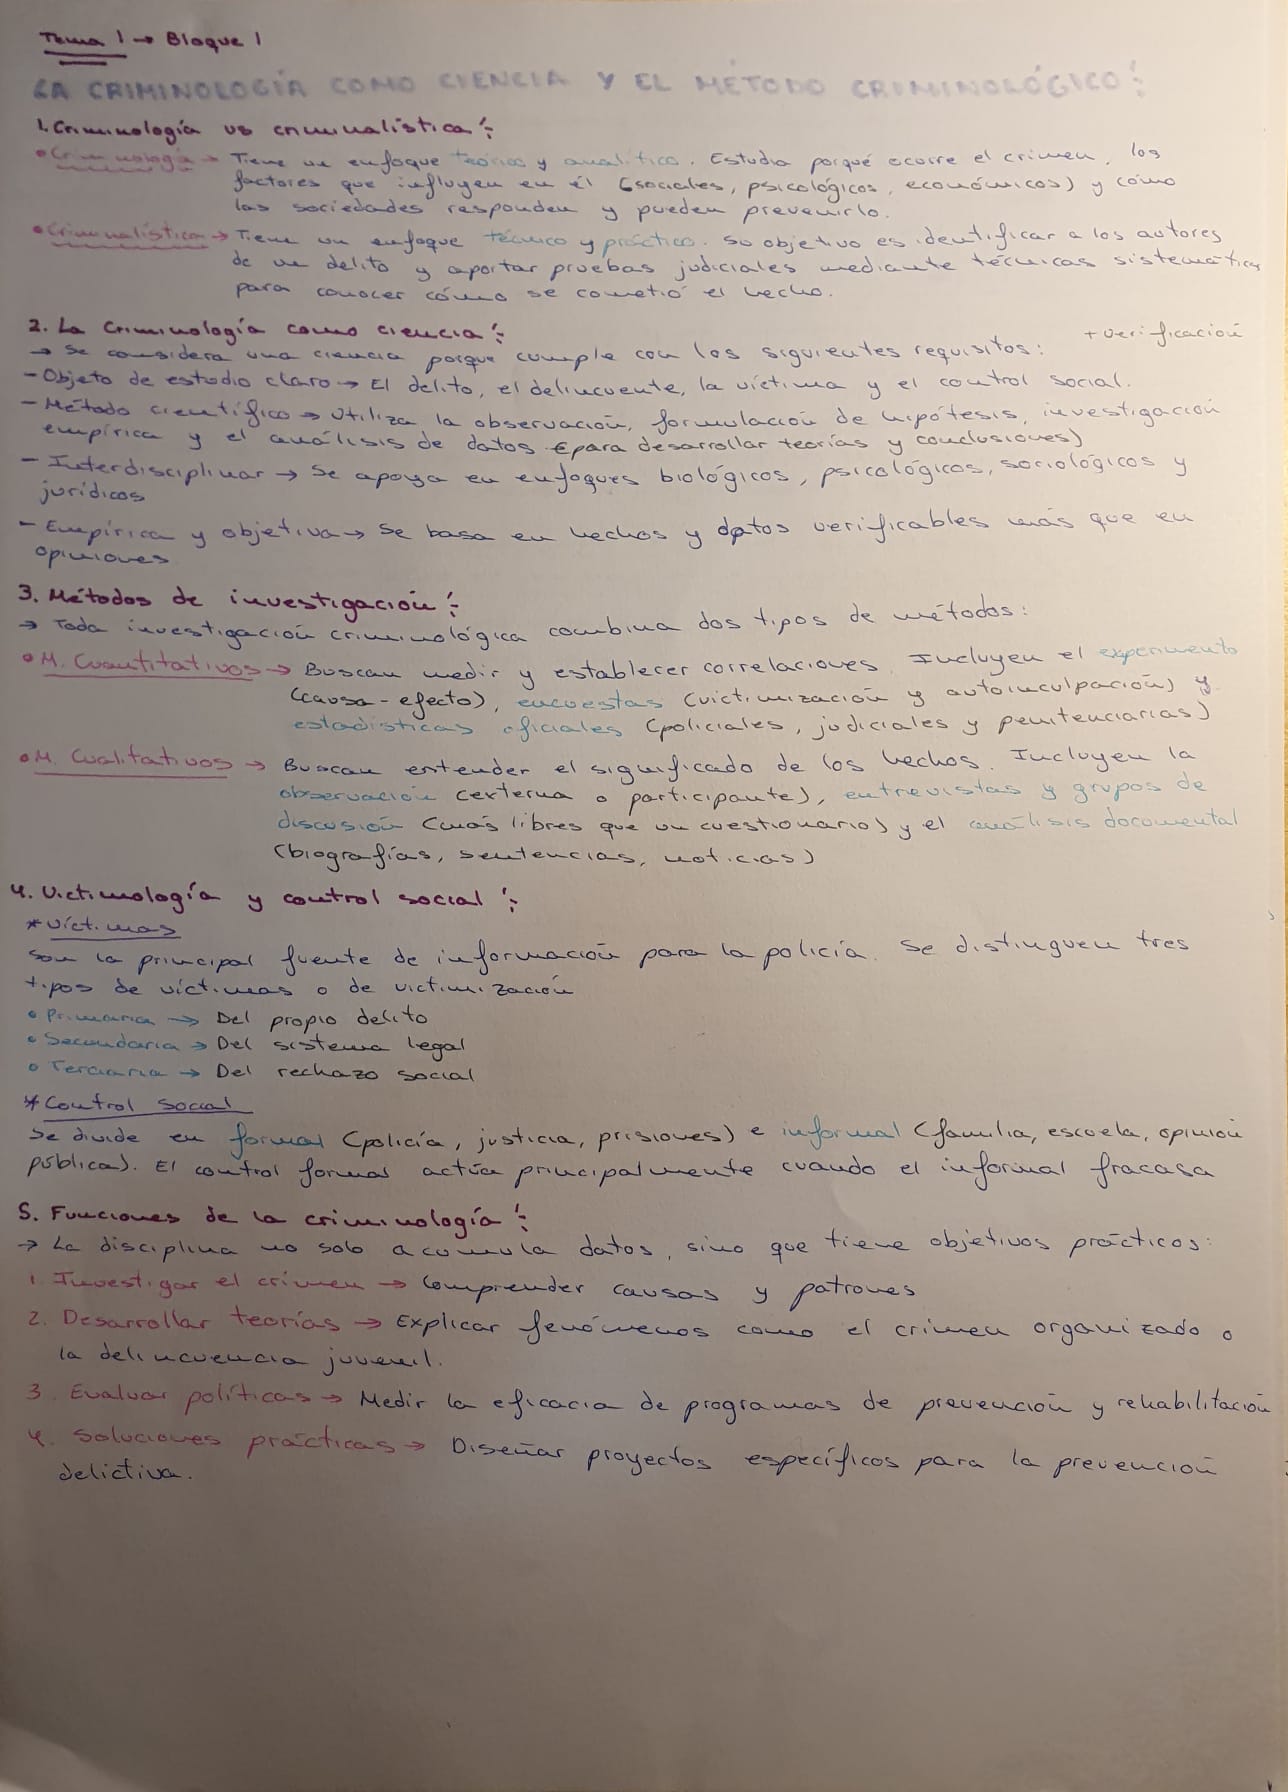 Tema 1 → Bloque 1
LA CRIMINOLOGÍA COMO CIENCIA Y EL MÉTODO CRIMINOLÓGICO:
1. Criminología vs criminalística:
• Criminología → Tiene un enfoque teórico y analítico. Estudia porqué ocurre el crimen, los
factores que influyen en él (sociales, psicológicos, económicos) y cómo
las sociedades responden y pueden prevenirlo.
• Criminalística → Tiene un enfoque técnico y práctico. Su objetivo es identificar a los autores
de un delito y aportar pruebas judiciales mediante técnicas sistemáticas
para conocer cómo se cometió el hecho.
2. La Criminología como ciencia:
→ Se considera una ciencia porque cumple con los siguientes requisitos: + verificación
- Objeto de estudio claro → El delito, el delincuente, la víctima y el control social.
- Método científico → Utiliza la observación, formulación de hipótesis, investigación
empírica y el análisis de datos (para desarrollar teorías y conclusiones)
- Interdisciplinar → Se apoya en enfoques biológicos, psicológicos, sociológicos y
jurídicos
- Empírica y objetiva → Se basa en hechos y datos verificables más que en
opiniones
3. Métodos de investigación:
→ Toda investigación criminológica combina dos tipos de métodos:
• M. Cuantitativos → Buscan medir y establecer correlaciones. Incluyen el experimento
(causa-efecto), encuestas (victimización y autoinculpación) y
estadísticas oficiales (policiales, judiciales y penitenciarias)
• M. Cualitativos → Buscan entender el significado de los hechos. Incluyen la
observación (externa o participante), entrevistas y grupos de
discusión (más libres que un cuestionario) y el análisis documental
(biografías, sentencias, noticias)
4. Victimología y control social:
* Víctimas
Son la principal fuente de información para la policía. Se distinguen tres
tipos de víctimas o de victimización
• Primaria → Del propio delito
• Secundaria → Del sistema legal
• Terciaria → Del rechazo social
* Control social
Se divide en formal (policía, justicia, prisiones) e informal (familia, escuela, opinión
pública). El control formal actúa principalmente cuando el informal fracasa
5. Funciones de la criminología:
→ La disciplina no solo acumula datos, sino que tiene objetivos prácticos:
1. Investigar el crimen → Comprender causas y patrones
2. Desarrollar teorías → Explicar fenómenos como el crimen organizado o
la delincuencia juvenil.
3. Evaluar políticas → Medir la eficacia de programas de prevención y rehabilitación
4. Soluciones prácticas → Diseñar proyectos específicos para la prevención
delictiva.